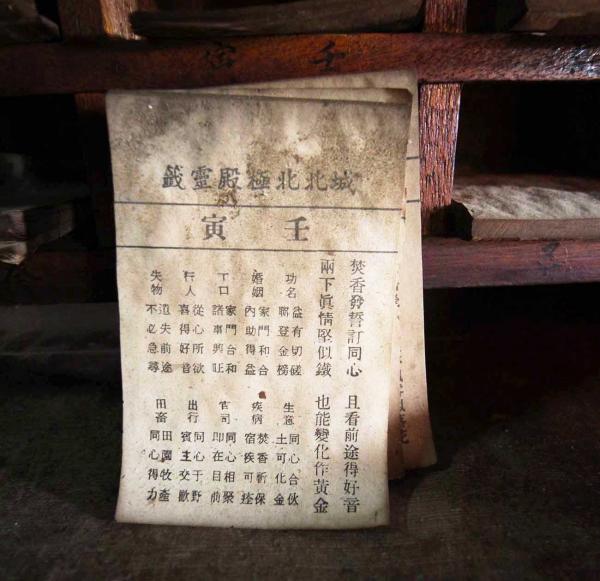 壬寅
城北北極殿靈籤
壬寅
焚香發誓訂同心 且看前途得好音
兩下眞情堅似鐵 也能變化作黃金
功名 益有切磋 聯登金榜
婚姻 家門和合 內助得益
丁口 家門台和 諸事興旺
行人 從心所欲 喜得好音
失物 遺失前途 不必急尋
生意 同心合伙 土可化金
疾病 焚香祈保 宿疾可痊
官司 同心相聚 即在目前
出行 同心于野 賓主交歡
田畜 田園牧產 同心得力